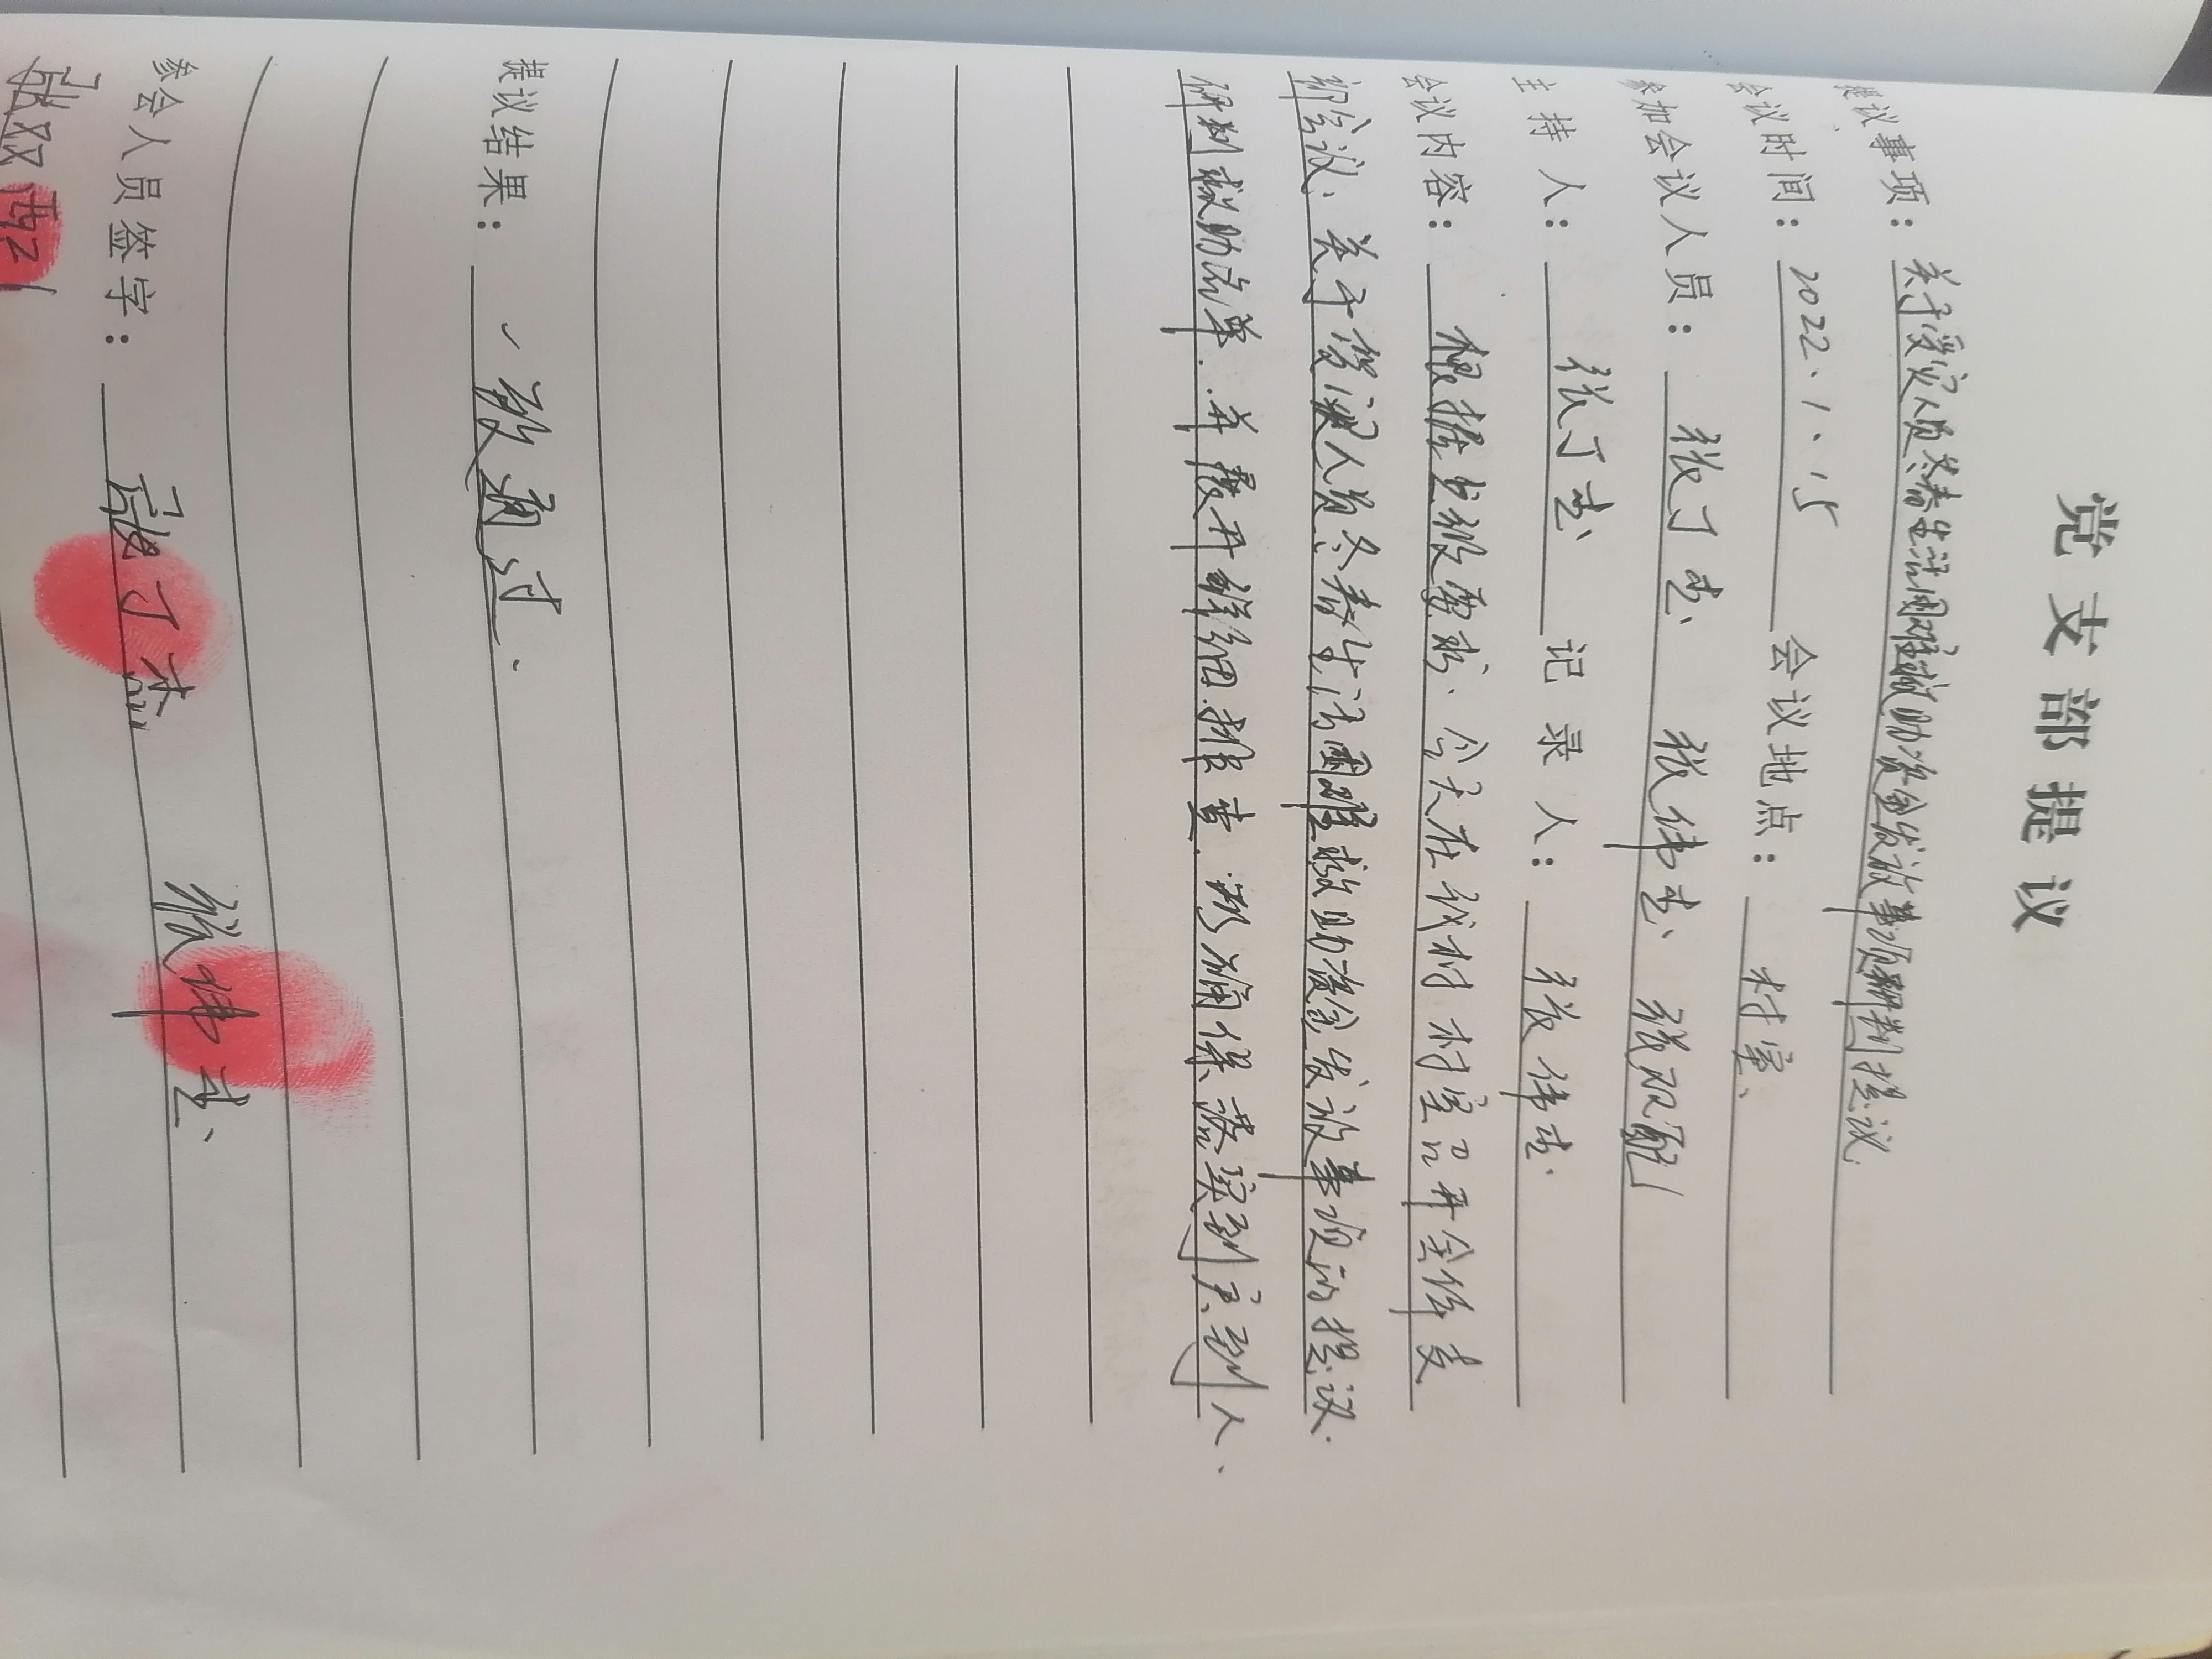 党支部提议
提议事项：关于受灾人员冬春生活困难救助资金发放事项研判提议.
会议时间：2022.1.15 会议地点：村室、
参加会议人员：张丁志 张伟志 张双配
主持人：张丁志 记录人：张伟志.
会议内容：根据上级要求、今天在我村村室召开全体支
部会议、关于受灾人员冬春生活困难救助资金发放事项的提议.
研判救助流单.并展开详细排查.明确保落实到户、到人、
提议结果：一致通过.
参会人员签字：张丁志 张伟志、
张双配